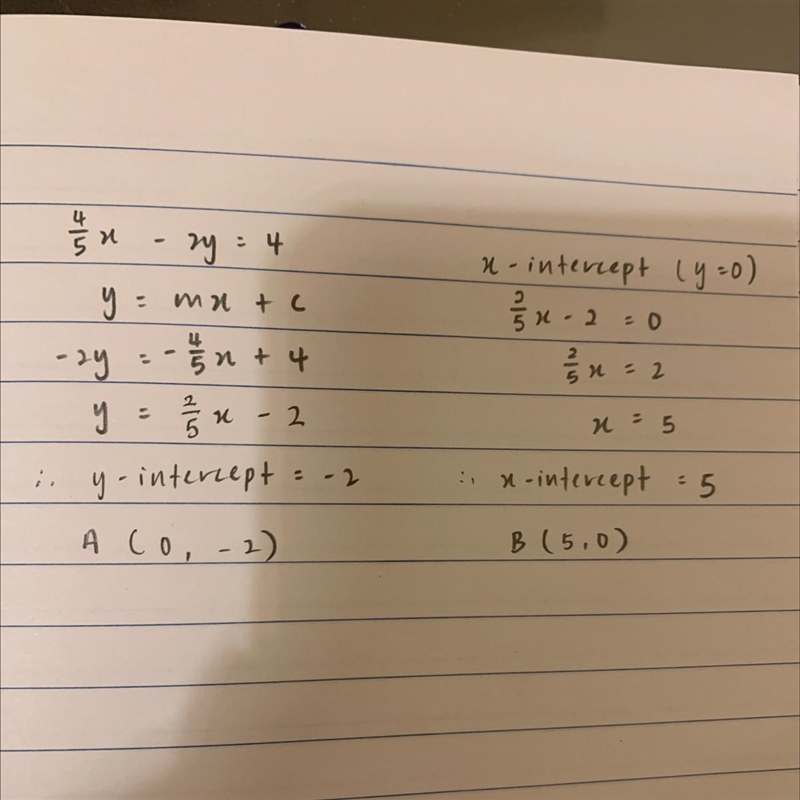 4/5 x - 2y = 4
y = mx + c
-2y = -4/5 x + 4
y = 2/5 x - 2
∴ y-intercept = -2
A (0, -2)
x-intercept (y=0)
2/5 x - 2 = 0
2/5 x = 2
x = 5
∴ x-intercept = 5
B (5,0)